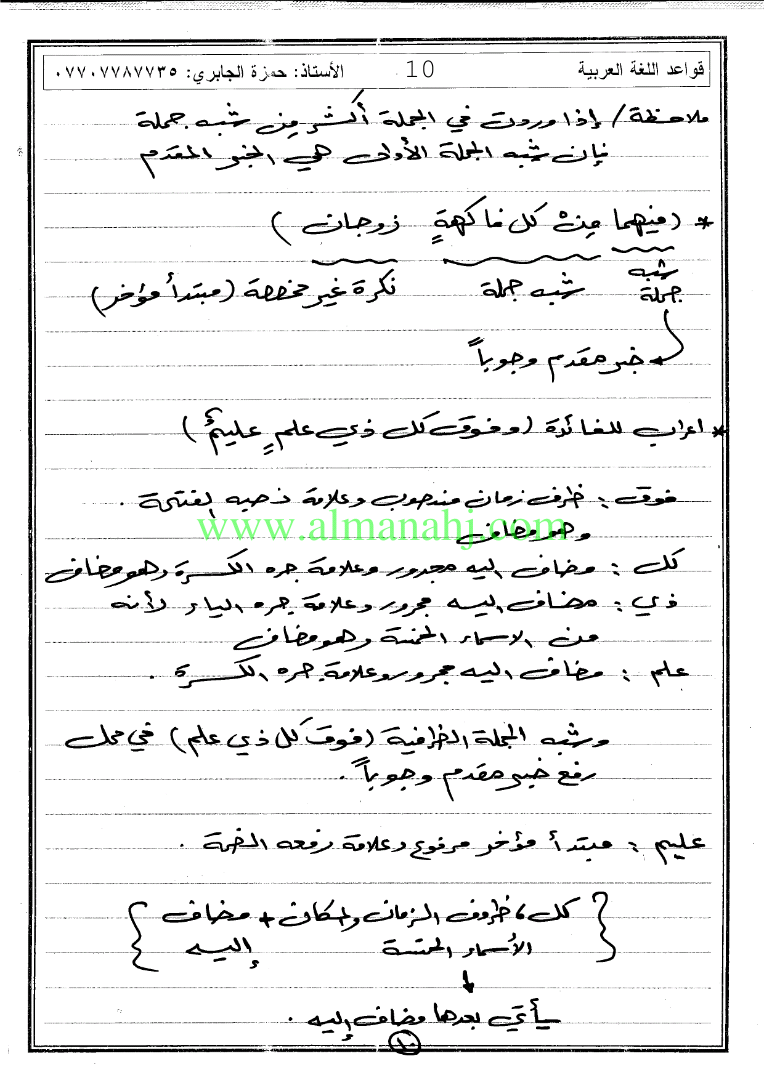 قواعد اللغة العربية 10 الأستاذ: حمزة الجابري: ٠٧٧٠٧٧٨٧٧٣٥
ملاحظة/ إذا وردت في الجملة أكثر مِن شبه جملة
فإن شبه الجملة الأولى هي الخبر المقدم
* (فيهما مِنْ كل فاكهةٍ زوجان)
شبه جملة شبه جملة نكرة غير مخصصة (مبتدأ مؤخر)
خبر مقدم وجوباً
* اعراب للفائدة (وفوق كل ذي علمٍ عليمٌ)
فوق : ظرف زمان منصوب وعلامة نصبه الفتحة .
وهو مضاف
www.almanahj.com
كل : مضاف اليه مجرور وعلامة جره الكسرة وهو مضاف
ذي : مضاف اليه مجرور وعلامة جره الياء لأنه
من الاسماء الخمسة وهو مضاف
علم : مضاف اليه مجرور وعلامة جره الكسرة .
وشبه الجملة الظرفية (فوق كل ذي علم) في محل
رفع خبر مقدم وجوباً .
عليم : مبتدأ مؤخر مرفوع وعلامة رفعه الضمة .
{ كل ، ظروف الزمان والمكان + مضاف
الأسماء الخمسة إليه }
يأتي بعدها مضاف إليه .
١٠